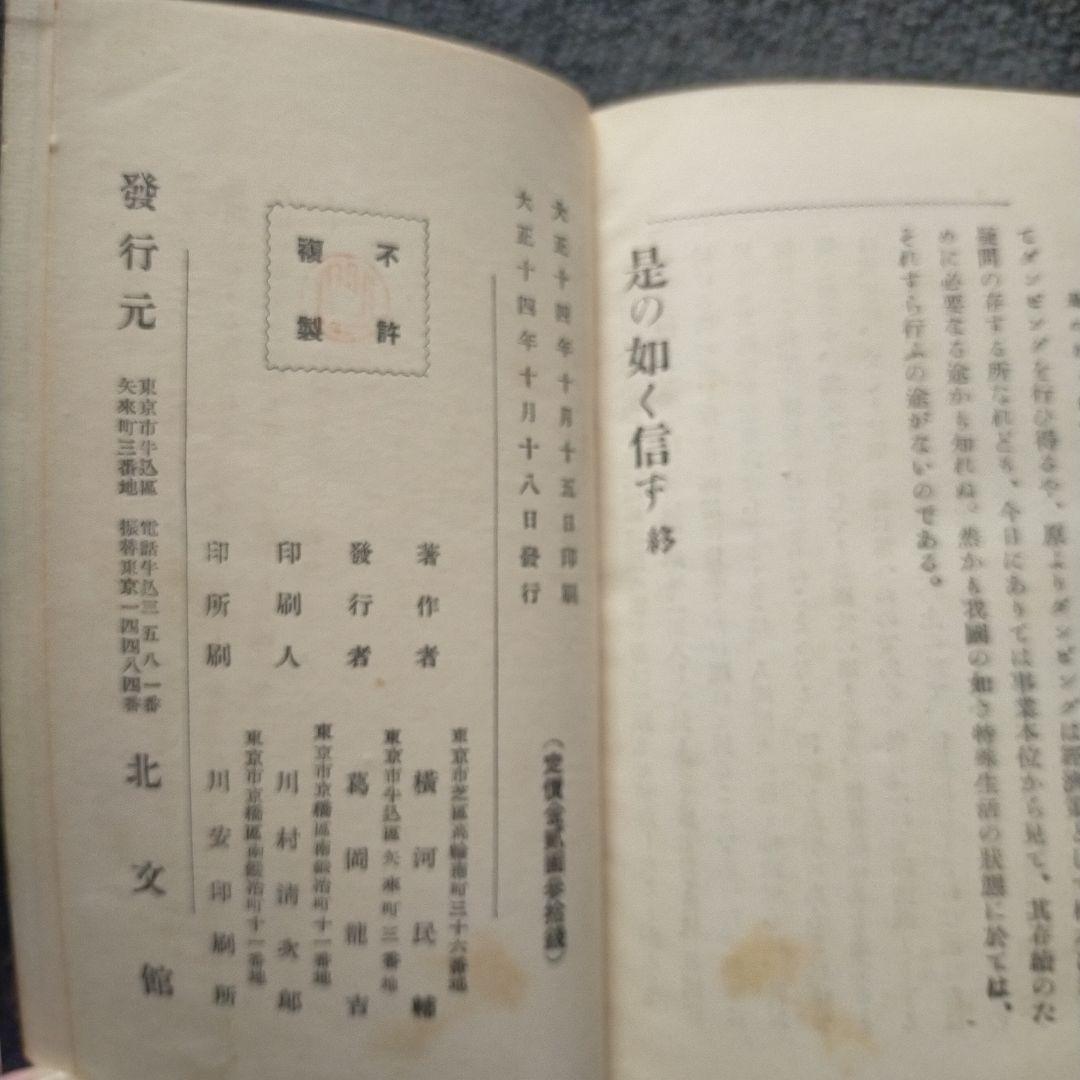 てダンピングを行ひ得るや、原よりダンピングは
疑問の存する所なれども、今日にありては事業本位から見て、其存續のた
めに必要なる途かも知れぬ。然かも我國の如き特殊生活の狀態に於ては、
それすら行ふの途がないのである。
是の如く信ず 終
大正十四年十月十五日印刷
大正十四年十月十八日發行
(定價金貳圓參拾錢)
不許
複製
東京市芝區高輪南町三十六番地
著作者 橫河民輔
東京市牛込區矢來町三番地
發行者 葛岡龍吉
東京市京橋區南鍛冶町十一番地
印刷人 川村淸次郎
東京市京橋區南鍛冶町十一番地
印所刷 川安印刷所
發行元
東京市牛込區
矢來町三番地
電話牛込三五八一番
振替東京一四四八四番
北文館